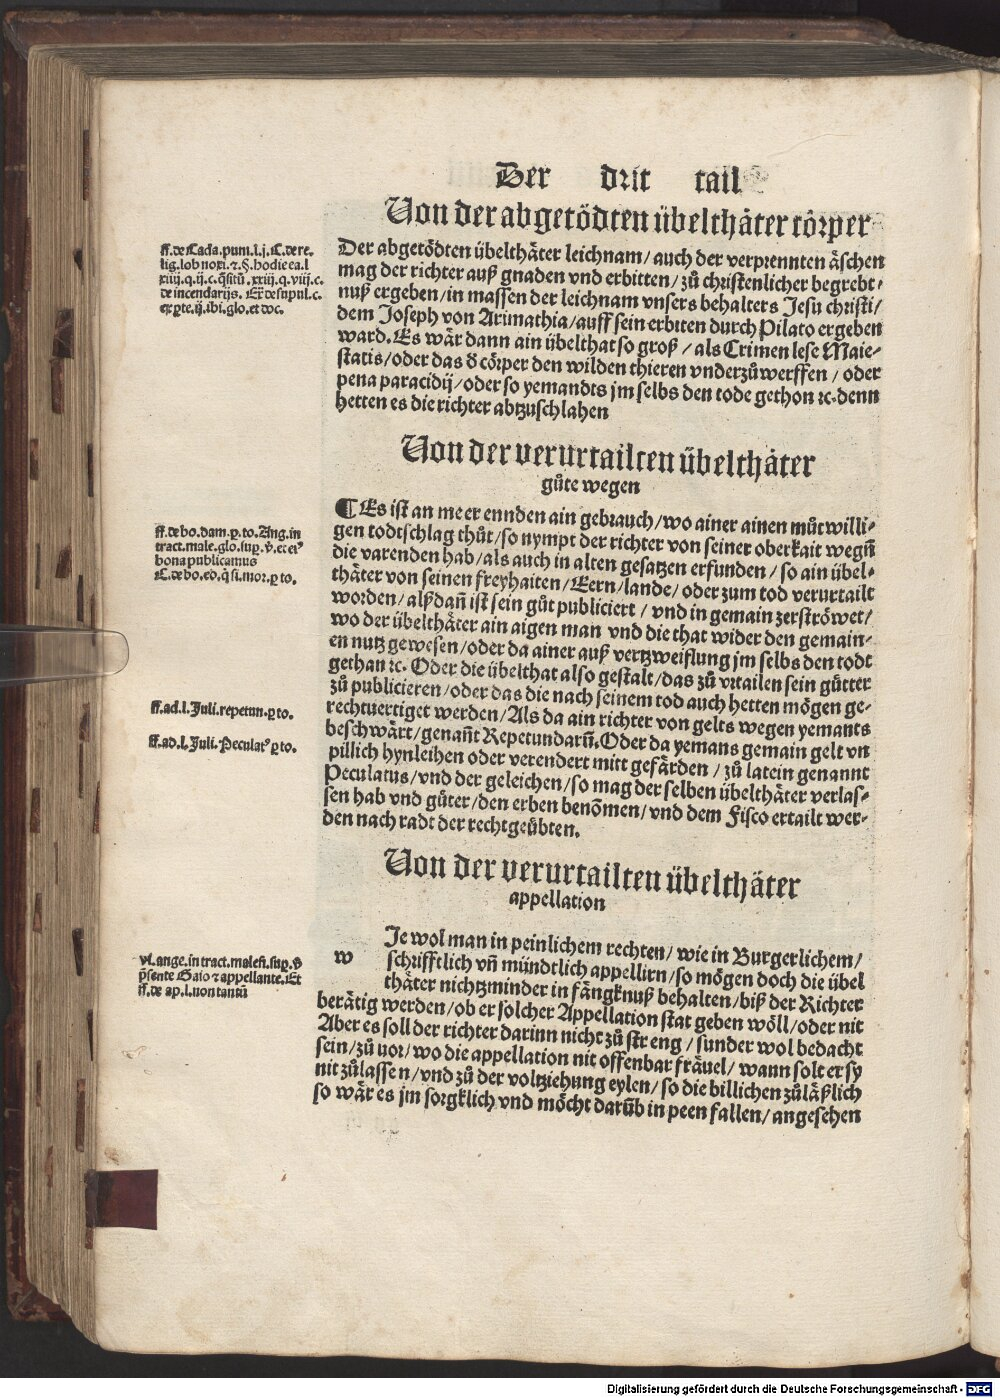 Der drit tail
Von der abgetödten übelthäter cörper
ff. de Cada. puni. l. j. C. de re-
lig. l. ob noxi. ⁊. §. hodie ea. l
xiiij. q. ij. c. q̄situ. xxiij. q. viij. c.
de incendarijs. Ex̄ de sepul. c.
ex p̲te. ij. ibi. glo. et doc.
Der abgetödten übelthäter leichnam / auch der verprennten äschen
mag der richter auß gnaden vnd erbitten / zů christenlicher begrebt-
nuß ergeben / in massen der leichnam vnsers behalters Jesu christi /
dem Joseph von Arimathia / auff sein erbiten durch Pilato ergeben
ward. Es wär dann ain übelthat so groß / als Crimen lese Maie-
statis / oder das d̓ cörper den wilden thieren vnderzůwerffen / oder
pena paracidij / oder so yemandts jm selbs den tode gethon ⁊c. denn
hetten es die richter abtzuschlahen
Von der verurtailten übelthäter
gůte wegen
ff. de bo. dam. p̲. to. Ang. in
tract. male. glo. sup̲. v̓. et ei⁹
bona publicamus
C. de bo. eo. q̄ si. mor. p̲ to.
¶ Es ist an meer ennden ain gebrauch / wo ainer ainen můtwilli-
gen todtschlag thůt / so nympt der richter von seiner oberkait wegn̄
die varenden hab / als auch in alten gesatzen erfunden / so ain übel-
thäter von seinen freyhaiten / Eern / lande / oder zum tod verurtailt
worden / alßdañ ist sein gůt publiciert / vnd in gemain zerströwet /
wo der übelthäter ain aigen man vnd die that wider den gemain-
en nutz gewesen / oder da ainer auß vertzweiflung jm selbs den todt
gethan ⁊c. Oder die übelthat also gestalt / das zů vrtailen sein gütter
zů publicieren / oder das die nach seinem tod auch hetten mögen ge-
rechtuertiget werden / Als da ain richter von gelts wegen yemants
beschwärt / genañt Repetundarū. Oder da yemans gemain gelt vn
pillich hynleihen oder verendert mitt gefärden / zů latein genannt
Peculatus / vnd der geleichen / so mag der selben übelthäter verlas-
sen hab vnd güter / den erben benōmen / vnd dem Fisco ertailt wer-
den nach radt der rechtgeübten.
ff. ad. l. Juli. repetun. p̲ to.
ff. ad. l. Juli. Peculat⁹ p̲ to.
Von der verurtailten übelthäter
appellation
vl. ange. in tract. malefi. sup̲. v̓
p̄sente Gaio ⁊ appellante. Et
ff. de ap. l. non tantū
w Je wol man in peinlichem rechten / wie in Burgerlichem /
schrifftlich vñ mündtlich appellirn / so mögen doch die übel
thäter nichtzminder in fängknuß behalten / biß der Richter
berätig werden / ob er solcher Appellation stat geben wöll / oder nit
Aber es soll der richter darinn nicht zů streng / sunder wol bedacht
sein / zů uor / wo die appellation nit offenbar fräuel / wann solt er sy
nit zůlassen / vnd zů der voltziehung eylen / so die billichen zůläßlich
so wär es jm sorgklich vnd möcht darūb in peen fallen / angesehen
Digitalisierung gefördert durch die Deutsche Forschungsgemeinschaft - DFG